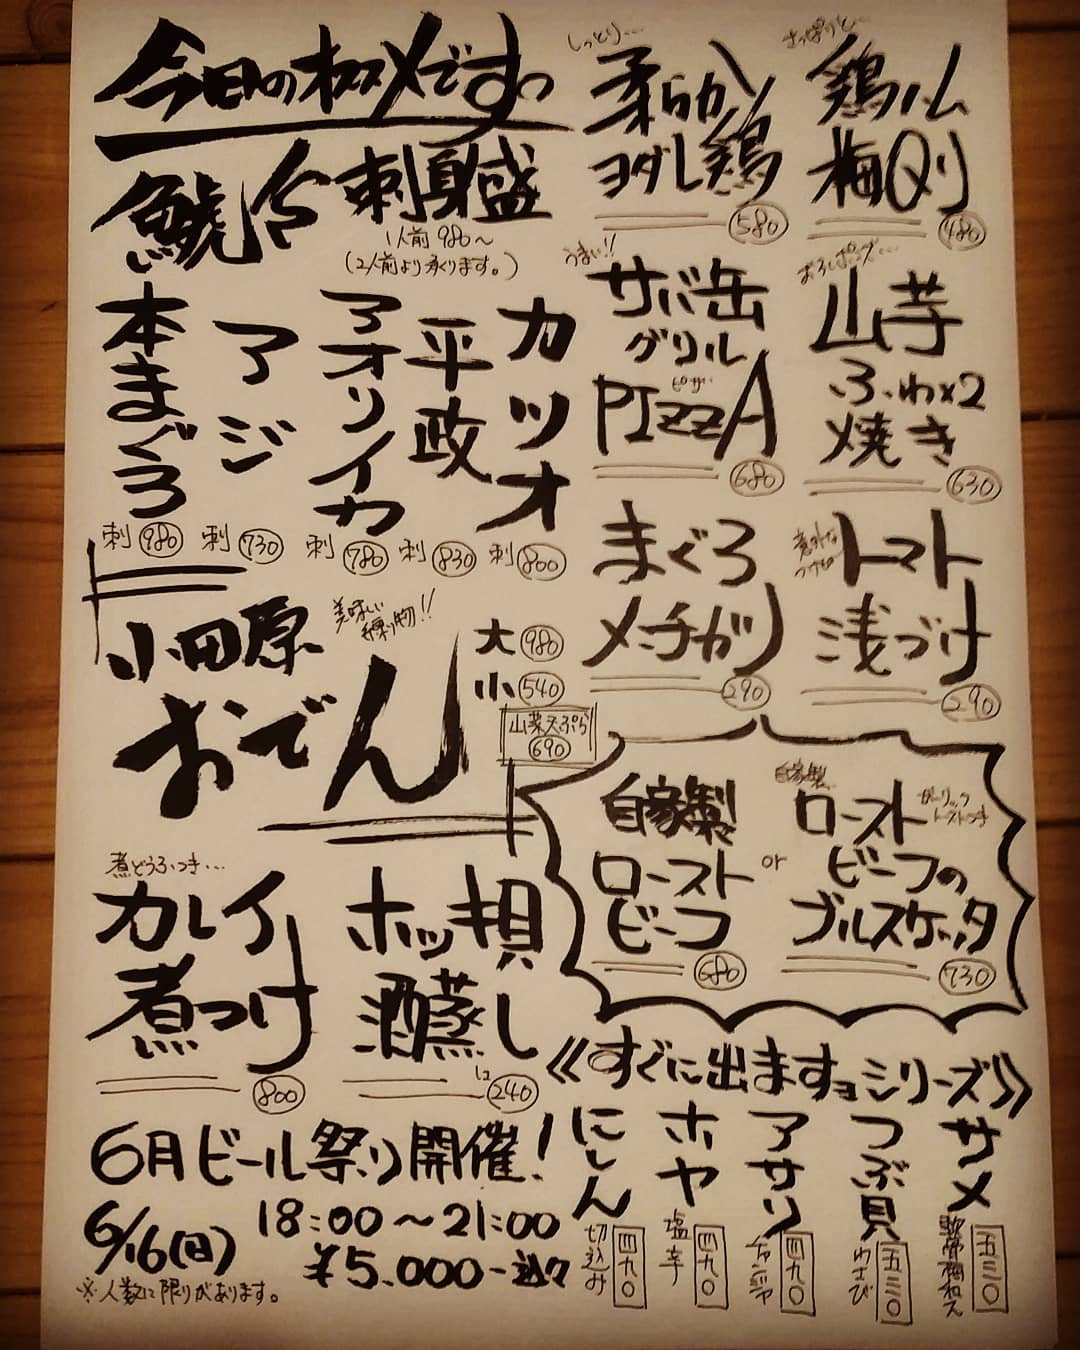 今日のオススメですっ
刺身盛
1人前 980〜
(2人前より承ります。)
カツオ
刺 800
平政
刺 830
アオリイカ
刺 780
アジ
刺 730
本まぐろ
刺 980
小田原
おでん
美味しい
練り物!!
大 980
小 540
山菜天ぷら
690
煮どうふつき…
カレイ
煮つけ
800
ホッキ貝
酒蒸し
1コ 240
6月ビール祭り開催!
6/16(日)
18:00〜21:00
¥5.000-込々
※人数に限りがあります。
さっぱりと…
鶏ハム
梅肉
480
しっとり…
柔らか
ヨダレ鶏
580
おろしポンズ…
山芋
ふわ×2
焼き
630
うまい!!
サバ缶
グリル
ピザ
PIzzA
680
意外な
つけもの
トマト
浅づけ
290
まぐろ
メンチガツ
290
自家製
ロースト
ビーフ
680
or
自家製
ロースト
ガーリック
トーストつき
ビーフの
ブルスケッタ
730
《すぐに出ますョシリーズ》
サメ
軟骨梅和え
五三〇
つぶ貝
わさび
五三〇
アサリ
チャンジャ
四九〇
ホヤ
塩辛
四九〇
にしん
切込み
四九〇